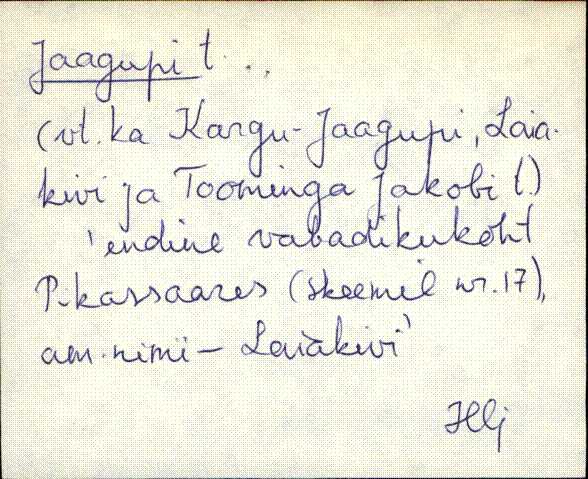 Jaagupi t.
(vt. ka Kargu-Jaagupi, Laia-
kivi ja Toominga Jakobi t.)
'endine vabadikukoht
P-Kassaares (skeemil nr. 17),
am. nimi – Laiakivi'
Hlj